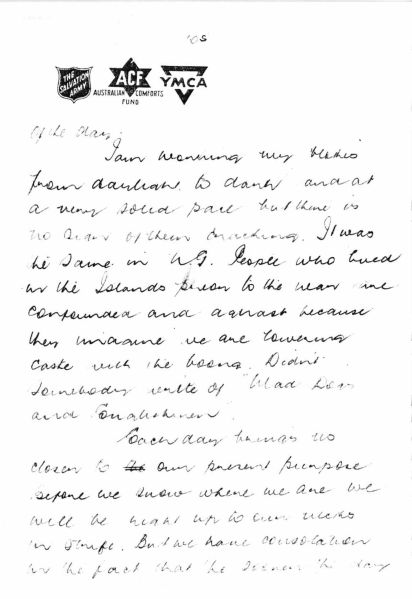 THE
SALVATION
ARMY
ACF
AUSTRALIAN COMFORTS
FUND
YMCA
of the day.
I am working my blokes
from daylight to dark and at
a very solid pace but there is
no sign of them cracking. It was
the same in N.G. People who lived
in the Islands prior to the war are
confounded and aghast because
they imagine we are lowering
caste with the boong. Didn't
somebody write of "Mad Dogs
and Englishmen"
Each day brings us
closer to our present purpose
before we know where we are we
will be right up to our necks
in strife. But we have consolation
in the fact that the sooner the day